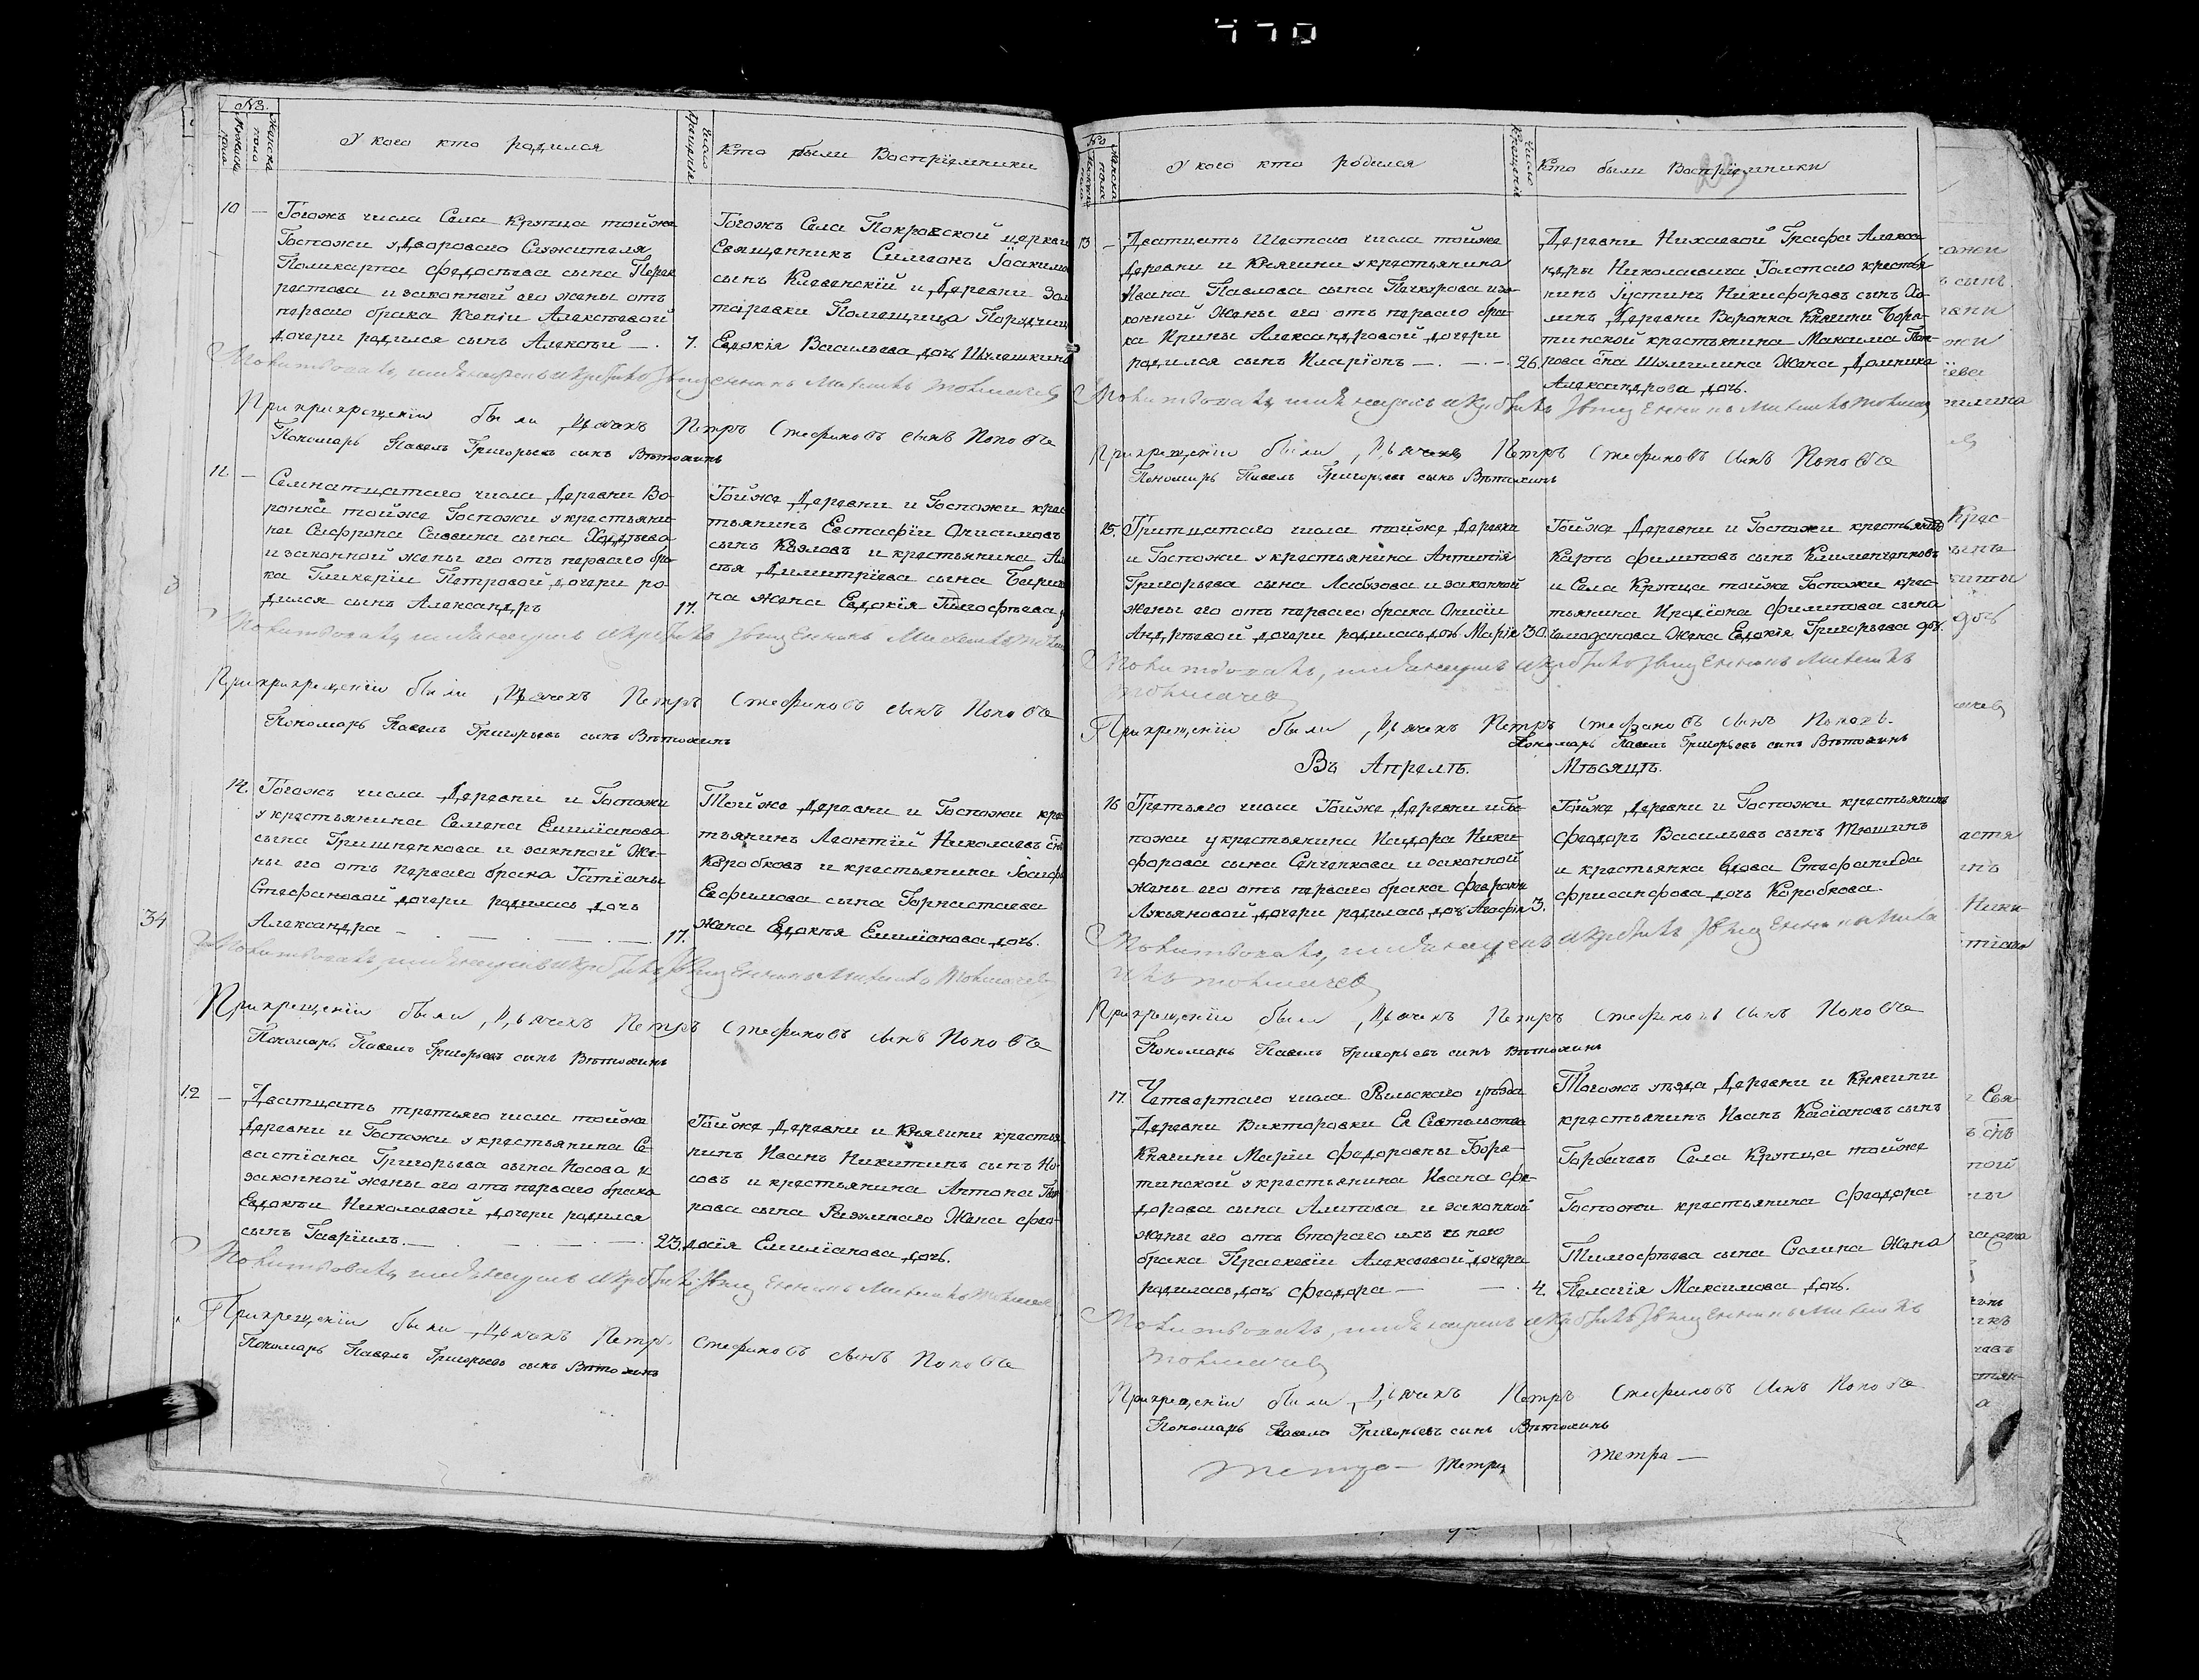 770
№
Мужеска пола
Женска пола
У кого кто родился
Число крещения
Кто были Воспрiемники
10 — Тогожъ числа Села Крупца тойже
Госпожи у Двороваго Служителя
Поликарпа Федосѣева сына
и законной его жены отъ
перваго брака Ксенiи Алексѣевой
дочери родился сынъ Алексѣй — 7.
Тогожъ Села Покровской церкви
Священникъ Симеонъ
сынъ Клевенскiй и Деревни
Помещица
Евдокiя Васильева дочь
Молитвовалъ, имя нарекъ и крестилъ священникъ
При крещенiи были Дьячекъ Петръ Стефановъ сынъ Поповъ
Пономарь Павелъ Григорьевъ сынъ Вѣтохинъ
11 — Семнатцатаго числа Деревни Во-
ронка тойже Госпожи у крестьяни-
на Сафрона Саввина сына
и законной жены его отъ перваго бра-
ка Гликерiи Петровой дочери ро-
дился сынъ Александръ 17.
Тойже Деревни и Госпожи крес
тьянинъ Евстафiй Онисимовъ
сынъ Козловъ и крестьянина
Димитрiева сына
на жена Евдокiя Тимофѣева
Молитвовалъ, имя нарекъ и крестилъ священникъ
При крещенiи были Дьячекъ Петръ Стефановъ сынъ Поповъ
Пономарь Павелъ Григорьевъ сынъ Вѣтохинъ
14. Тогожъ числа Деревни и Госпожи
у крестьянина Семена Емилiанова
сына Гришненкова и законной же-
ны его отъ перваго брака Татiаны
Стефановой дочери родилась дочь
Александра — 17.
Тойже Деревни и Госпожи кре
тьянинъ Леонтiй Николаевъ снъ
Коробковъ и крестьянина
Евфимова сына Горностаева
жена Евдокѣя Емилiанова дочь.
34
Молитвовалъ, имя нарекъ и крестилъ священникъ
При крещенiи были Дьячекъ Петръ Стефановъ сынъ Поповъ
Пономарь Павелъ Григорьевъ сынъ Вѣтохинъ
12 — Дватцать третьяго числа тойже
Деревни и Госпожи у крестьянина Се-
вастiана Григорьева сына Носова и
законной жены его отъ перваго брака
Евдокѣи Николаевой дочери родился
сынъ Гаврiилъ. — 23.
Тойже Деревни и Княгини крестья
нинъ Иванъ Никитинъ сынъ Но-
совъ и крестьянина Антона
рова сына жена Фео-
досiя Емилiанова дочь.
Молитвовалъ, имя нарекъ и крестилъ священникъ
При крещенiи были Дьячекъ Петръ Стефановъ сынъ Поповъ
Пономарь Павелъ Григорьевъ сынъ Вѣтохинъ
№
Женска пола
У кого кто родился
Число крещенiя
Кто были Воспрiемники
13 — Дватцать Шестаго числа тойже
Деревни и Княгини у крестьянина
Ивана Павлова сына Печкурова и за-
конной жены его отъ перваго бра-
ка Ирины Александровой дочери
родился сынъ Иларiонъ — 26.
Деревни Николаевой Графа Алекса
ндры Николаевича Толстаго крестья
нинъ Iустинъ Никифоровъ сынъ
Деревни Воронка Княгини Боря-
тинской крестьянина Максима
рова сна Шулигина жена Домника
Александрова дочь.
Молитвовалъ, имя нарекъ и крестилъ священникъ
При крещенiи были Дьячекъ Петръ Стефановъ сынъ Поповъ
Пономарь Павелъ Григорьевъ сынъ Вѣтохинъ
15. Тритцатаго числа тойже Деревни
и Госпожи у крестьянина Антипiя
Григорьева сына и законной
жены его отъ перваго брака Онисiи
Андрѣевой дочери родилась дочь Марiя 30.
Тойже Деревни и Госпожи крестьянинъ
Карпъ Филиповъ сынъ Клименченковъ
и Села Крупца тойже Госпожи крес-
тьянина Иродiона Филипова сына
Чемоданова жена Евдокiя Григорьева дочь.
Молитвовалъ, имя нарекъ и крестилъ священникъ
При крещенiи были Дьячекъ Петръ Стефановъ сынъ Поповъ.
Пономарь Павелъ Григорьевъ сынъ Вѣтохинъ
Въ Апрелѣ. Мѣсяцѣ.
16 Третьяго числа Тойже Деревни и Гос-
пожи у крестьянина Исидора Ники-
форова сына Сенченкова и законной
жены его отъ перваго брака Февронiи
Лукьяновой дочери родилась дочь Агафiя 3.
Тойже Деревни и Госпожи крестьянинъ
Феодоръ Васильевъ сынъ Тюшинъ
и крестьянка вдова Стефанида
Фрисанфова дочь Коробкова.
Молитвовалъ, имя нарекъ и крестилъ священникъ
При крещенiи были Дьячекъ Петръ Стефановъ сынъ Поповъ
Пономарь Павелъ Григорьевъ сынъ Вѣтохинъ
17. Четвертаго числа Рыльскаго уѣзда
Деревни Викторовки Ея Сiятельства
Княгини Марiи Федоровны Боря-
тинской у крестьянина Ивана Фе-
дорова сына Алипова и законной
жены его отъ втораго
брака Праскевiи Алексѣевой дочери
родилась дочь Феодора — 4.
Тогожъ уѣзда Деревни и Княгини
крестьянинъ Иванъ Касiановъ сынъ
Горбачевъ Села Крупца тойже
Госпожи крестьянина Феодора
Тимофѣева сына Сталина жена
Пелагiя Максимова дочь.
Молитвовалъ, имя нарекъ и крестилъ священникъ
При крещенiи были Дьячекъ Петръ Стефановъ сынъ Поповъ
Пономарь Павелъ Григорьевъ сынъ Вѣтохинъ